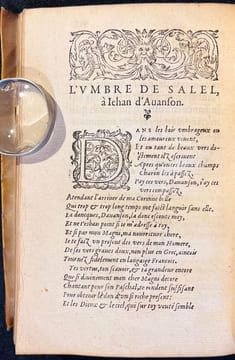 L'VMBRE DE SALEL,
à Iehan d'Auanson.
DANS les bois vmbrageux ou
les amoureux viuent,
Et ou tant de beaux vers
escriuent
Apres qu'iceux beaux champs
Charon les a passez,
Pay ces vers, Dauanson, i'ay ces
vers compassez.
Atendant l'arriuee de ma Corinne
Qui trop & trop long temps me faict languir sans elle.
Ia doncques, Dauanson, la donc escoute moy,
Et ne t'esbay point si ie m'adresse à toy,
Et si par mon Magni, ma nourriture chere,
Ie te saluz vn present des vers de mon Homere,
De ses vers graues doux, non plus en Grec, ainsois
Tournez fidellement en langaige Francois.
Tes vertus, ton scauoir, & ta grandeur encore
Qui si diuinement mon cher Magni decore
Chantant pour son Paschal, te rendent suffisant
Pour obtenir le don d'vn si riche present;
Et les Dieux & le ciel, qui sur toy